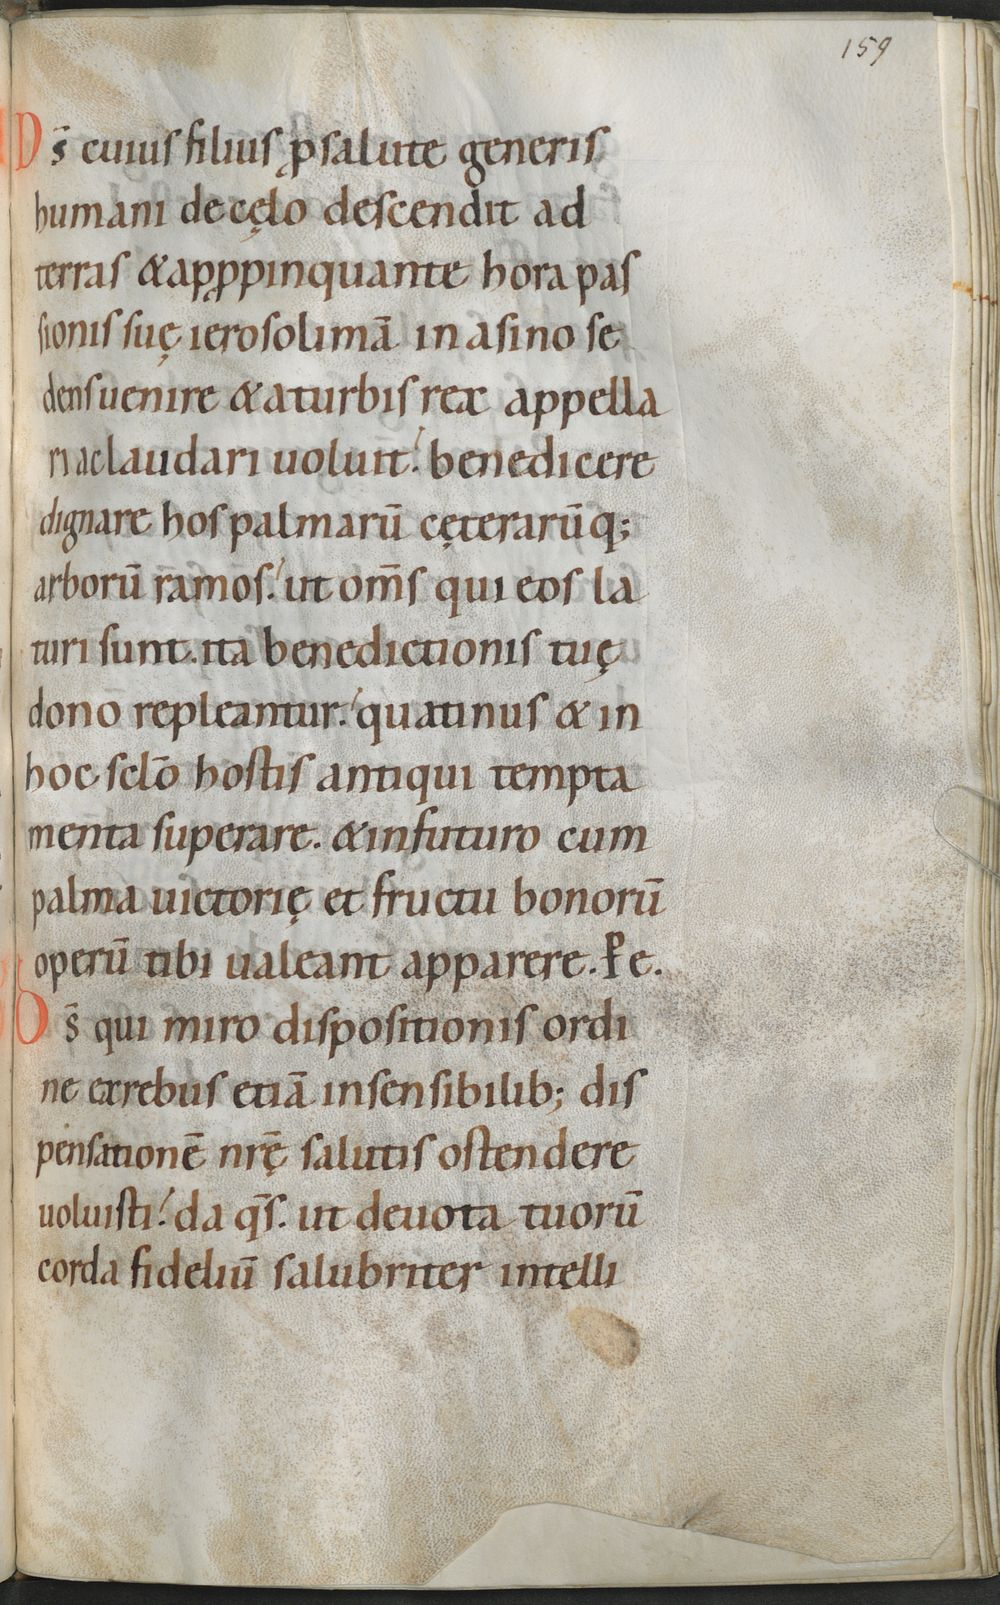 159
Ds̄ cuius filius ꝓ salute generis
humani de cęlo descendit ad
terras & apꝓpinquante hora pas
sionis suę ierosolimā in asino se
dens uenire & a turbis rex appella
ri ac laudari uoluit. benedicere
dignare hos palmarū cęterarūq;
arborū ramos. ut om̄s qui eos la
turi sunt. ita benedictionis tuę
dono repleantur. quatinus & in
hoc sclō hostis antiqui tempta
menta superare. & in futuro cum
palma uictorię et fructu bonorū
operū tibi ualeant apparere. P̄ e.
Ds̄ qui miro dispositionis ordi
ne ex rebus etiā insensibilib; dis
pensationē nrę̄ salutis ostendere
uoluisti. da qs̄. ut deuota tuorū
corda fideliū salubriter intelli